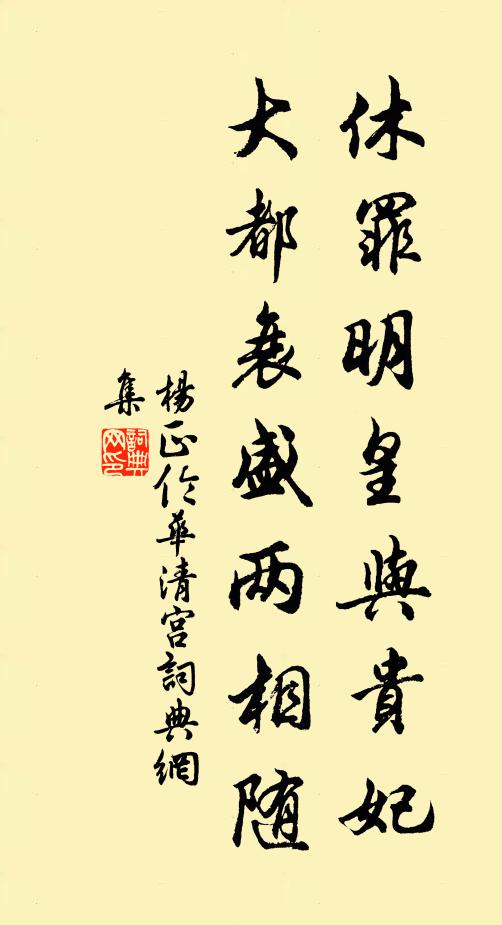 休罪明皇與貴妃
大都衰盛两相随
楊正伦華清宮詞典網
集
詞典
网印